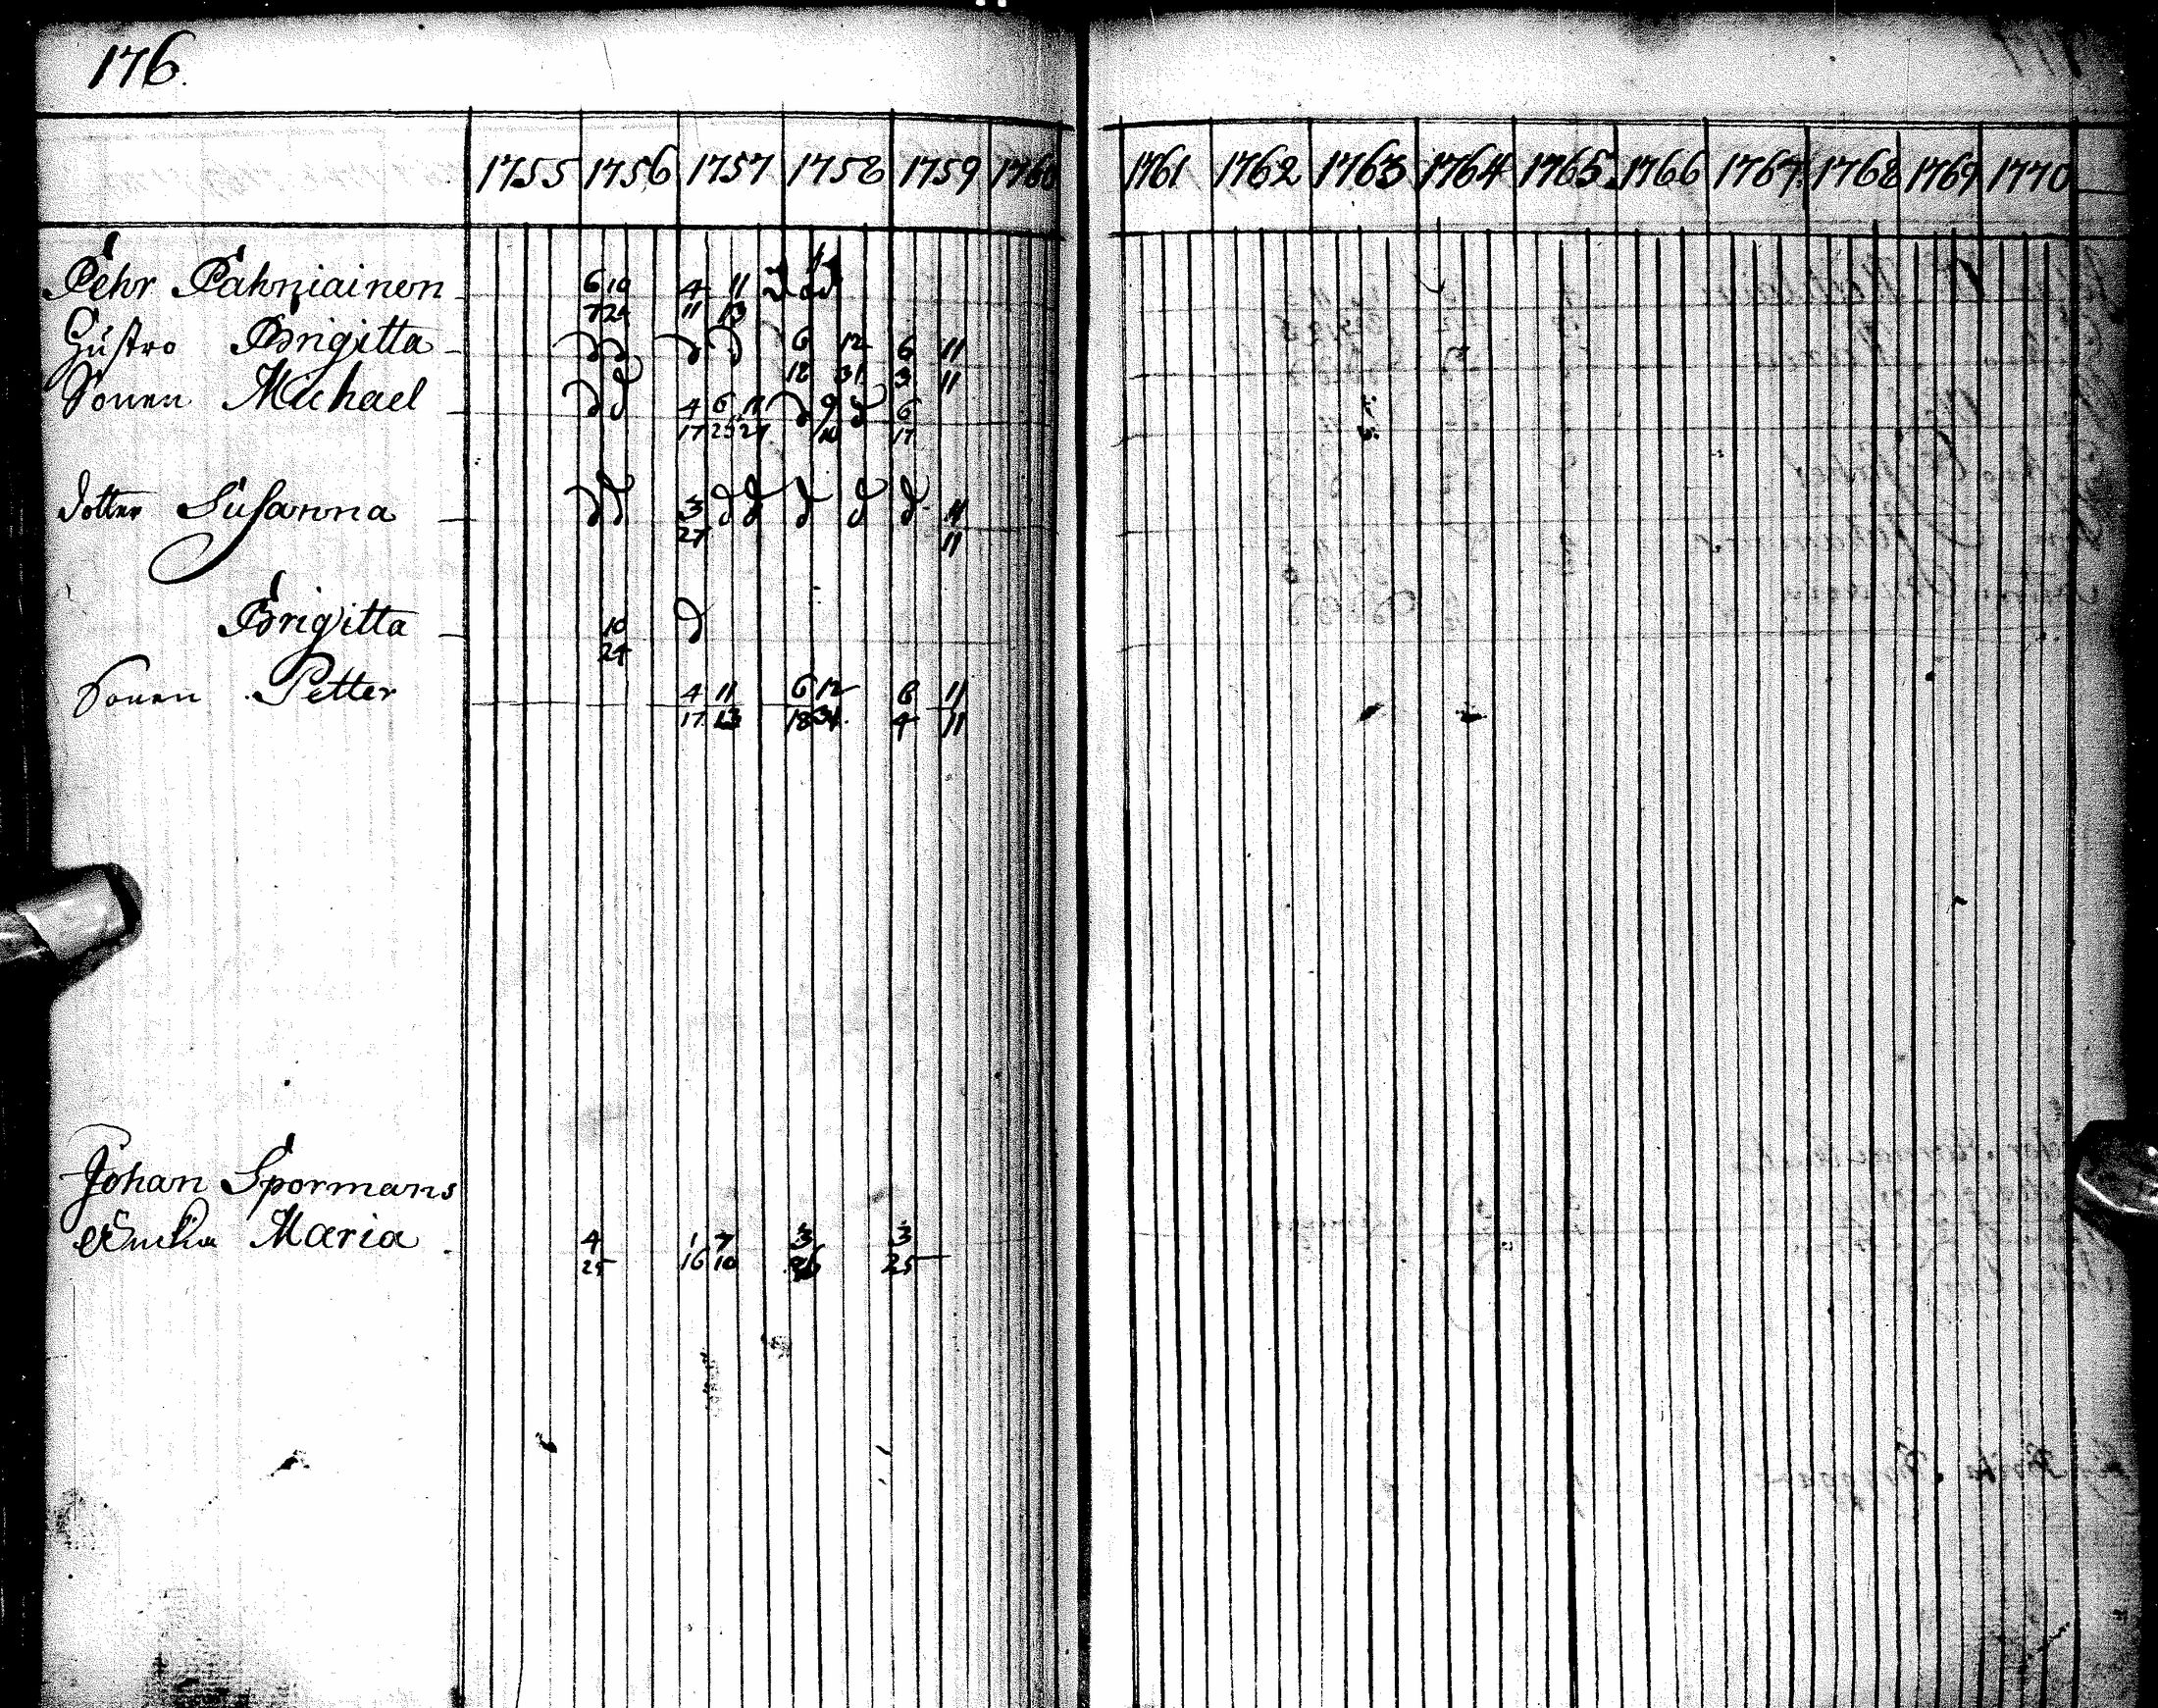 176.
1755 1756 1757 1758 1759 1760 1761 1762 1763 1764 1765 1766 1767 1768 1769 1770
Pehr Pahniainen 6 10 4 11
7 24 11 13
Hustro Brigitta 6 12 6 11
12 31 3 11
Sonen Michael 4 6 11 9 6
17 25 27 10 17
dotter Susanna 3 11
27 11
Brigitta 10
24
Sonen Petter 4 11 6 12 6 11
17 13 18 31. 4 11
Johan Spormans
Enckia Maria 4 1 7 3 3
25 16 10 26 25